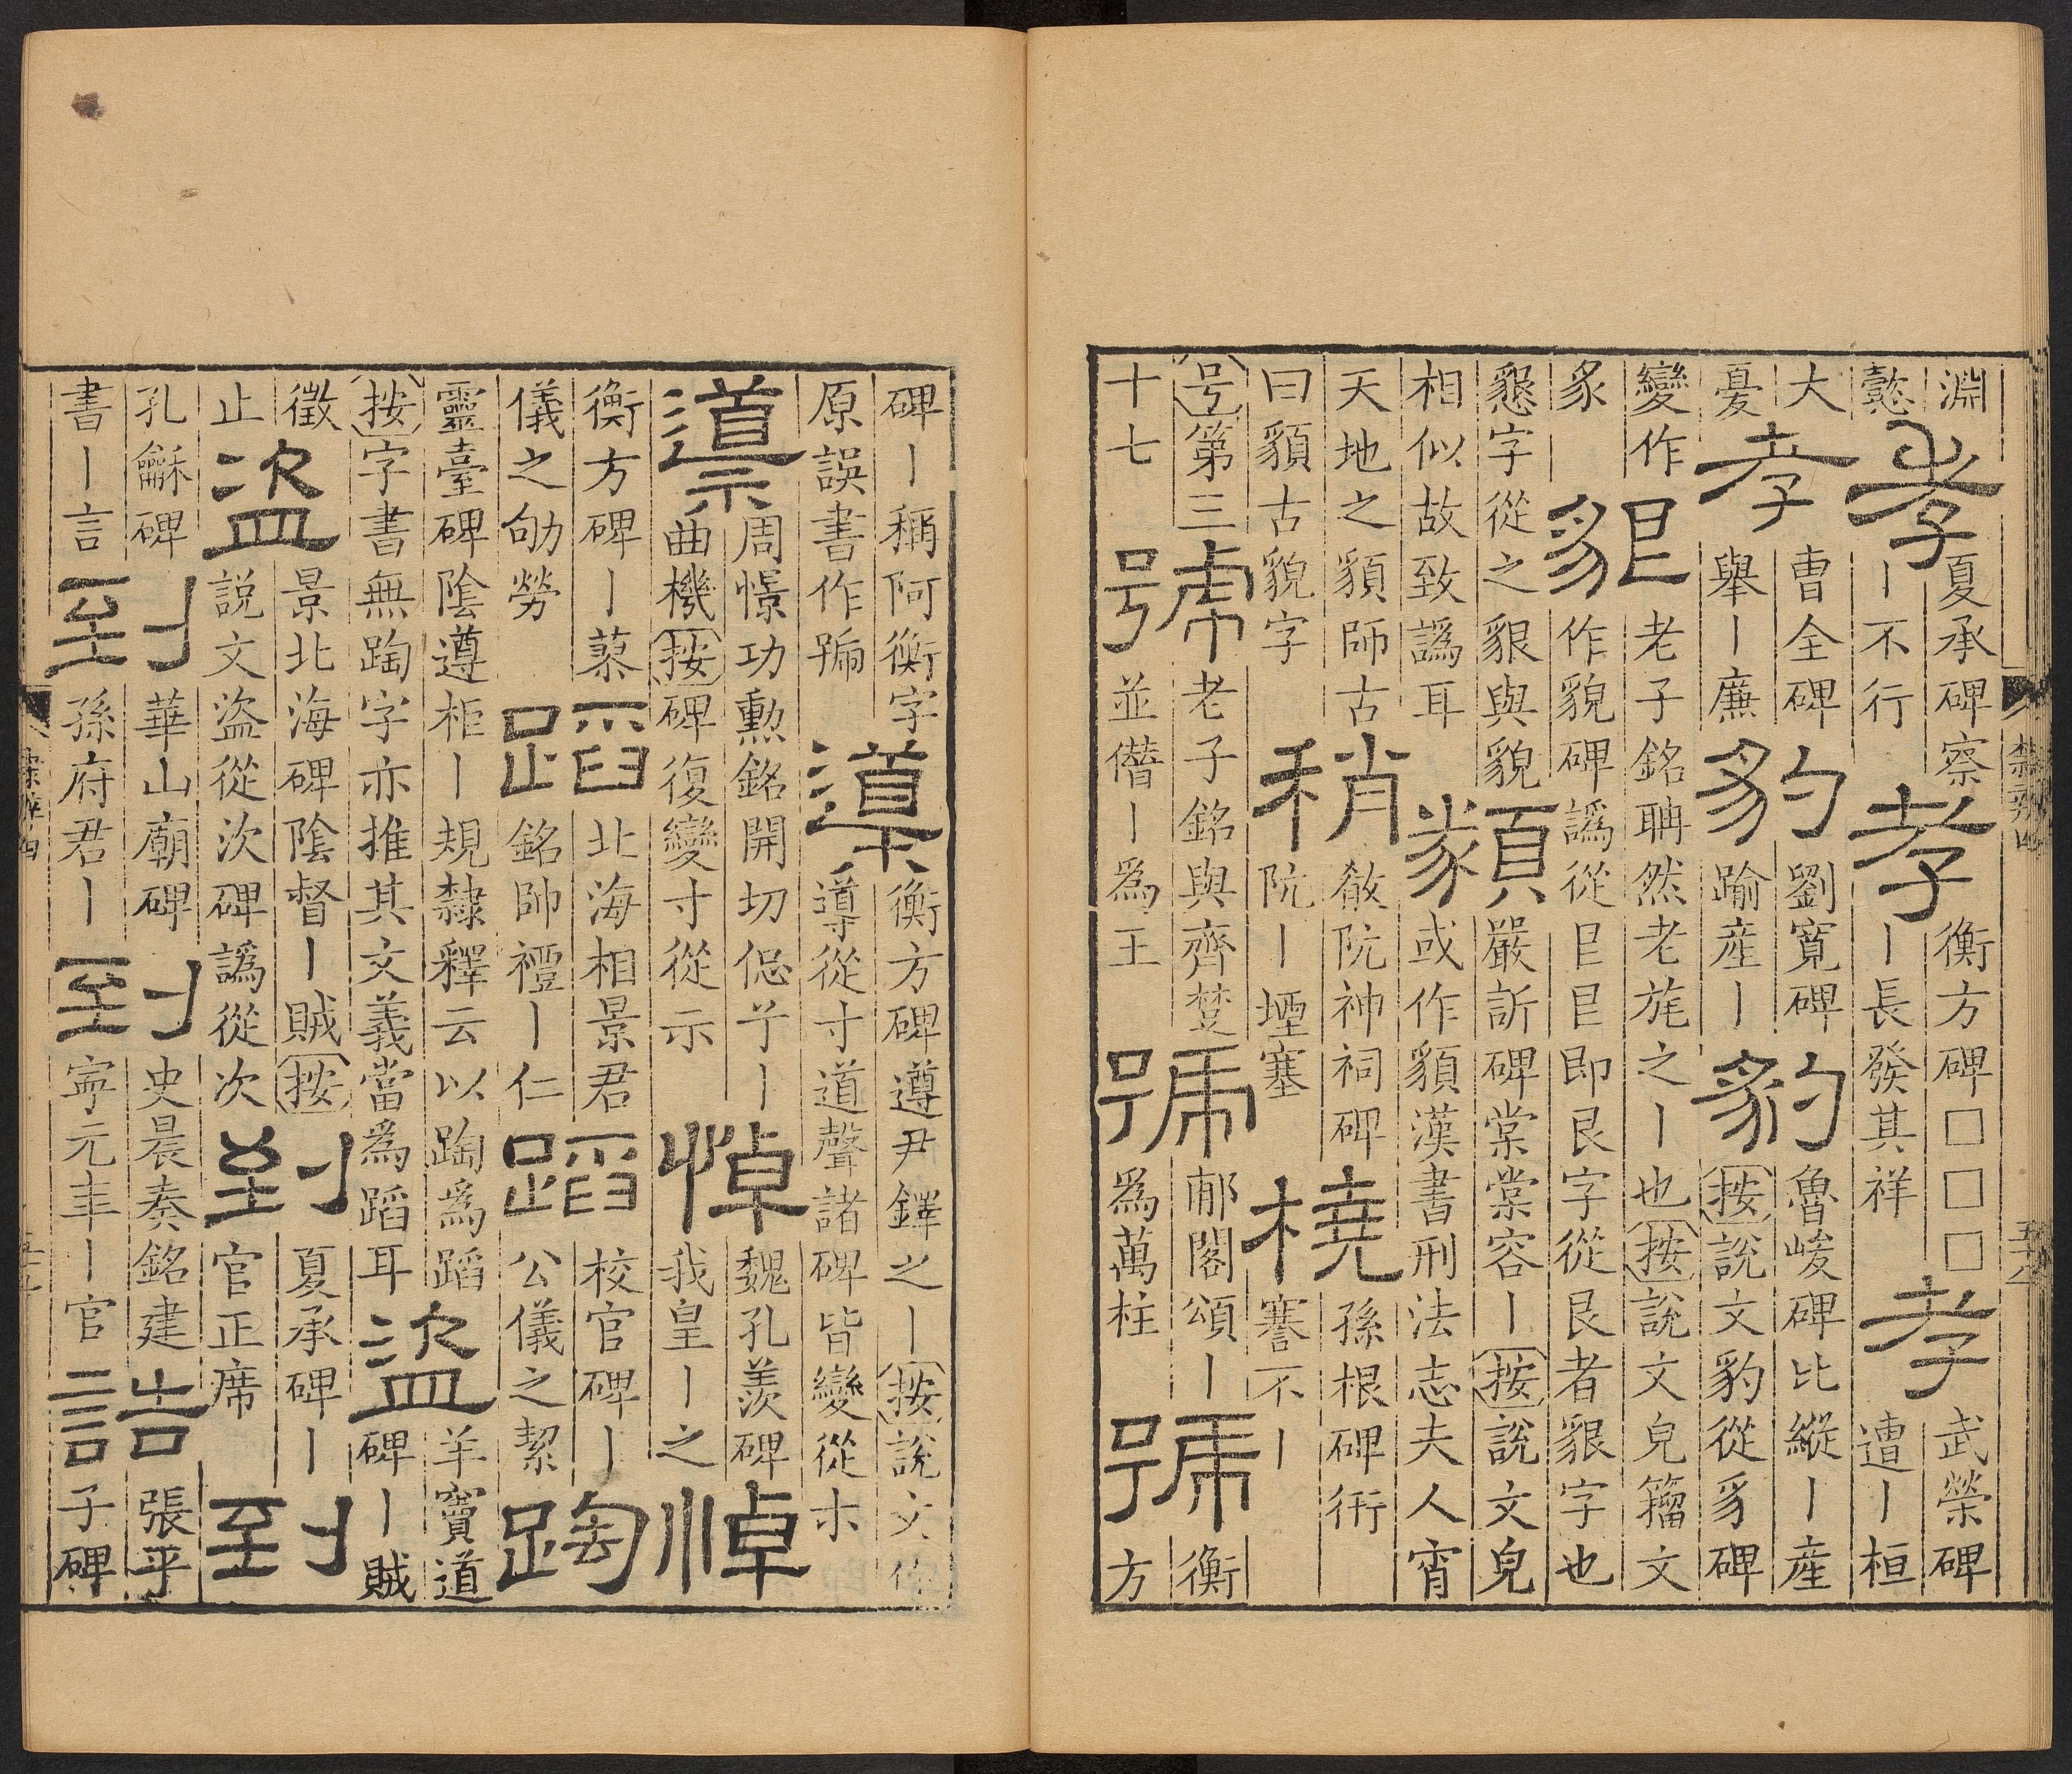 淵懿孝夏承碑察丨不行孝衡方碑□□□丨長發其祥孝武榮碑遭丨桓
大憂孝曹全碑舉丨廉豹劉寬碑踰産丨豹魯峻碑比縱丨産按說文豹從豸碑
變作豸貇老子銘聃然老旄之丨也按說文皃籀文作貌碑譌從㠯㠯即艮字從艮者貇字也
懇字從之貇與貌相似故致譌耳䫉嚴訢碑棠棠容丨按說文皃或作䫉漢書刑法志夫人宵
天地之䫉師古曰䫉古貌字稍敘阮神祠碑阮丨堙塞橈孫根碑衎謇不丨
号第三十七號老子銘與齊楚並僭丨爲王號郙閣頌丨爲萬柱號衡方
隸辨四 五十八
碑丨稱阿衡字原誤書作導衡方碑遵尹鐸之丨按說文作導從寸道聲諸碑皆變從木
導周憬功勳銘開切促丨曲機按碑復變寸從示悼魏孔羨碑我皇丨之悼
衡方碑丨蓩儀之劬勞蹈北海相景君銘帥禮丨仁蹈校官碑丨公儀之絜䧟
靈臺碑陰遵柜丨規隸釋云以䧟爲蹈按字書無䧟字亦推其文義當爲蹈耳盜羊竇道碑丨賊
徵止盜景北海碑陰督丨賊按説文盜從㳄碑譌從次到夏承碑丨官正席到
孔龢碑書丨言到華山廟碑孫府君丨到史晨奏銘建寧元年丨官誥張平子碑